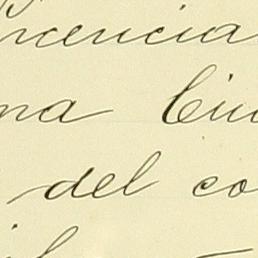 ncencia
na Ciu
del co